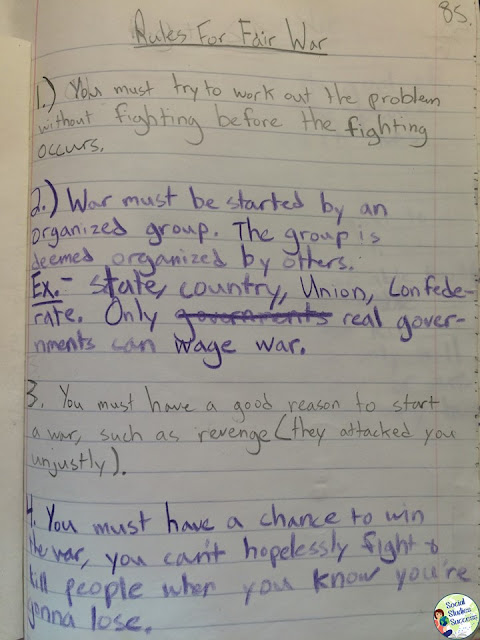 85.
Rules For Fair War
1.) You must try to work out the problem
without fighting before the fighting
occurs.
2.) War must be started by an
organized group. The group is
deemed organized by others.
Ex.- state, country, Union, Confede-
rate. Only governments real gover-
nments can wage war.
3. You must have a good reason to start
a war, such as revenge (they attacked you
unjustly).
4. You must have a chance to win
the war, you can't hopelessly fight &
kill people when you know you're
gonna lose.
Social
Studies
Success